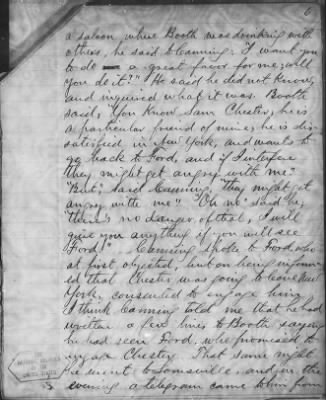 6
a saloon where Booth was drinking with
others, he said to Canning: "I want you
to do — a great favor for me; will
you do it?" He said he did not know,
and inquired what it was. Booth
said, "You know Sam Chester; he is
a particular friend of mine; he is dis-
satisfied in New York, and wants to
go back to Ford, and if I interfere
they might get angry with me."
"But", said Canning, "they might get
angry with me." "Oh no" said he,
there's no danger of that, I will
give you anything if you will see
Ford." Canning spoke to Ford, who
at first objected, but on being inform-
ed that Chester was going to leave New
York, consented to engage him.
I think Canning told me that he had
written a few lines to Booth saying
he had seen Ford, who promised to
engage Chester. That same night
he went to Louisville, and in the
evening a telegram came to him from